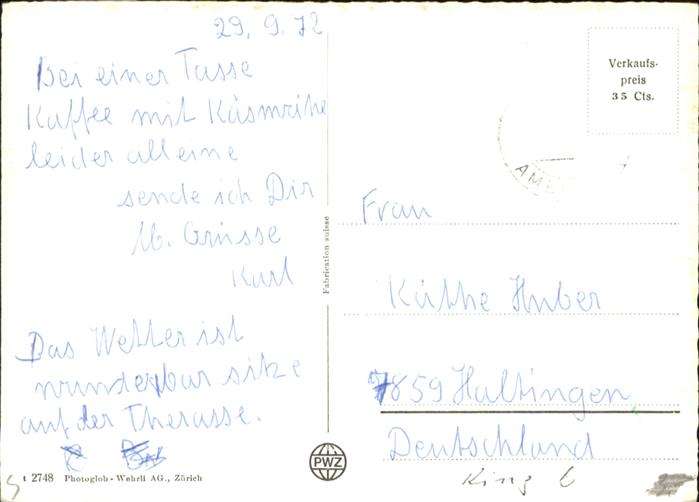 29. 9. 72
Bei einer Tasse
Kaffee mit Käsmrihe
leider alleine
sende ich Dir
lb. Grüsse
Karl
Das Wetter ist
wunderbar sitze
auf der Therasse.
t 2748 Photoglob-Wehrli AG., Zürich
Fabrication suisse
PWZ
Verkaufs-
preis
35 Cts.
Frau
Käthe Huber
7859 Haltingen
Deutschland